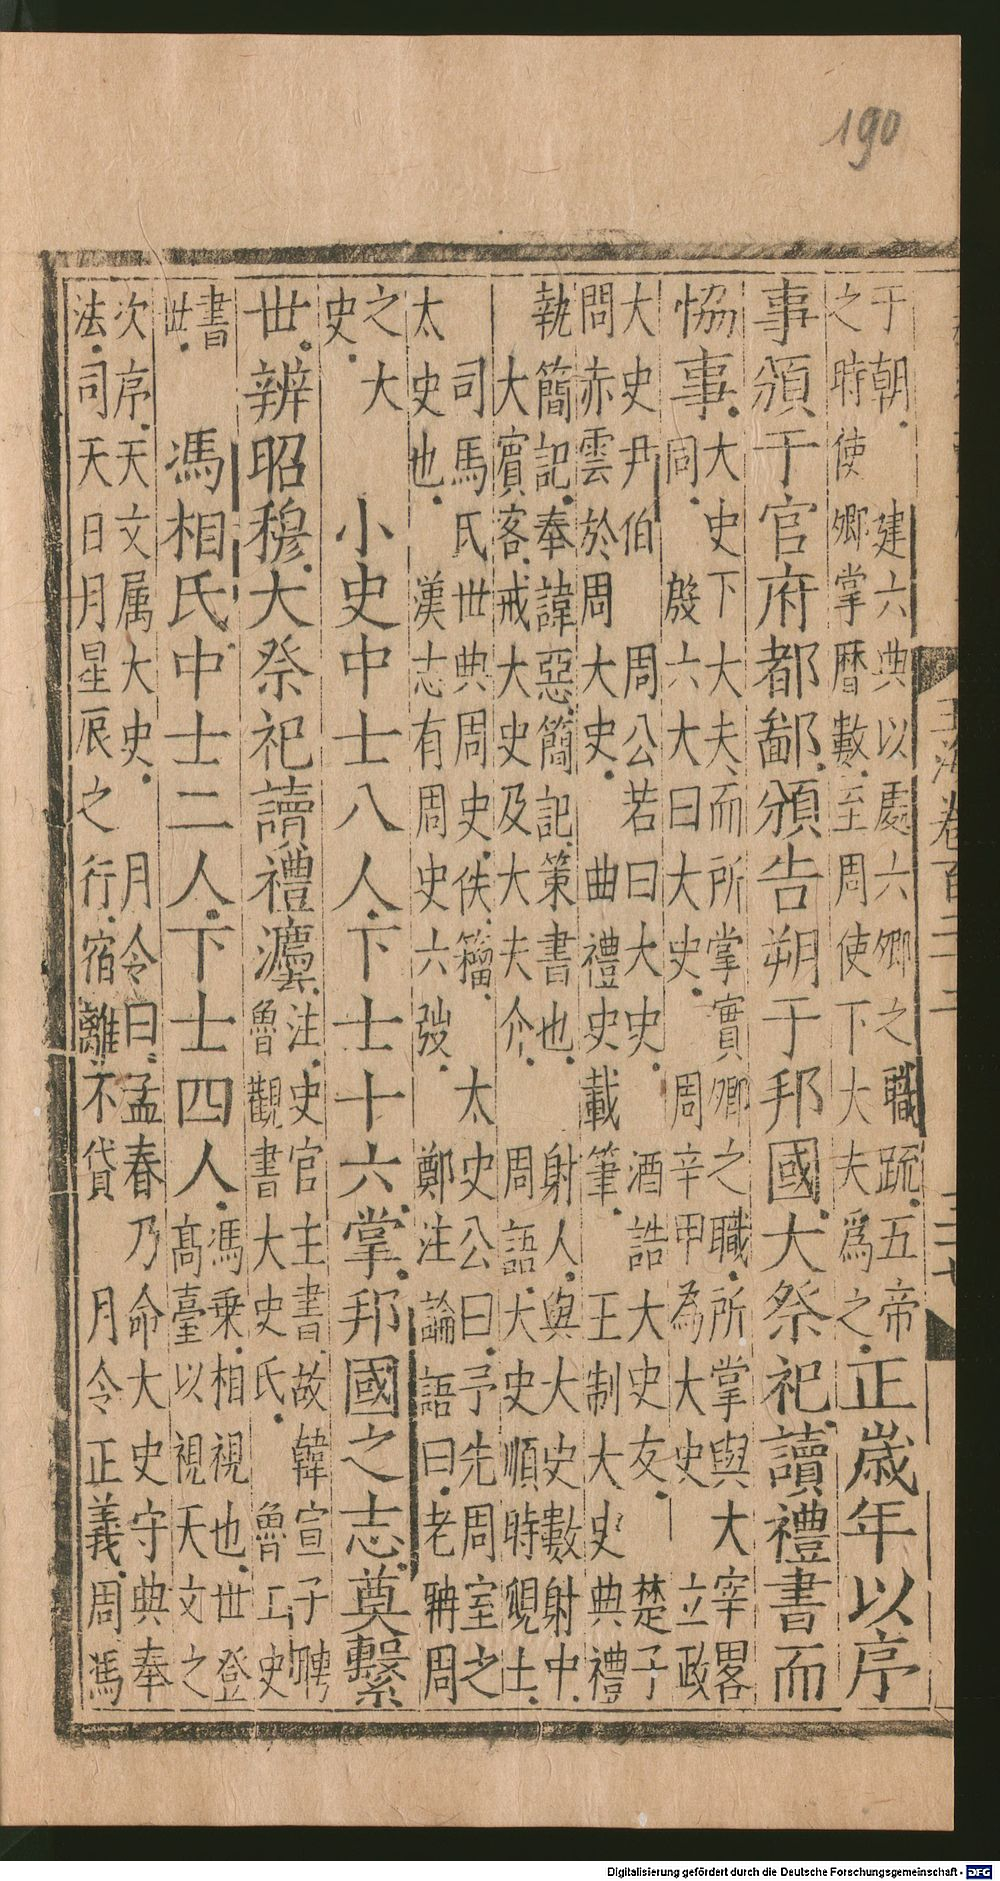 190
于朝 建六典以處六卿之職䟽五帝
之時使卿掌曆數至周使下大夫爲之 正歲年以序
事頒于官府都鄙頒告朔于邦國大祭祀讀禮書而
協事 大史下大夫而所掌實卿之職所掌與大宰畧
同 殷六大曰大史 周辛甲為大史 立政
大史尹伯 周公若曰大史 酒誥大史友 楚子
問赤雲於周大史 曲禮史載筆 王制大史典禮
執簡記奉諱惡簡記策書也 射人與大史數射中
大賓客戒大史及大夫介 周語大史順時覛土
司馬氏世典周史佚籀 太史公曰予先周室之
太史也 漢志有周史六弢 鄭注論語曰老聃周
之大
史 小史中士八人下士十六掌邦國之志奠繫
世辨昭穆大祭祀讀禮灋 注史官主書故韓宣子聘
魯觀書大史氏 魯工史
書
世 馮相氏中士二人下士四人 馮乘相視也世登
高臺以視天文之
次序天文属大史 月令曰孟春乃命大史守典奉
法司天日月星辰之行宿離不貸 月令正義周馮
玉海卷百二十二
二十七
Digitalisierung gefördert durch die Deutsche Forschungsgemeinschaft - DFG